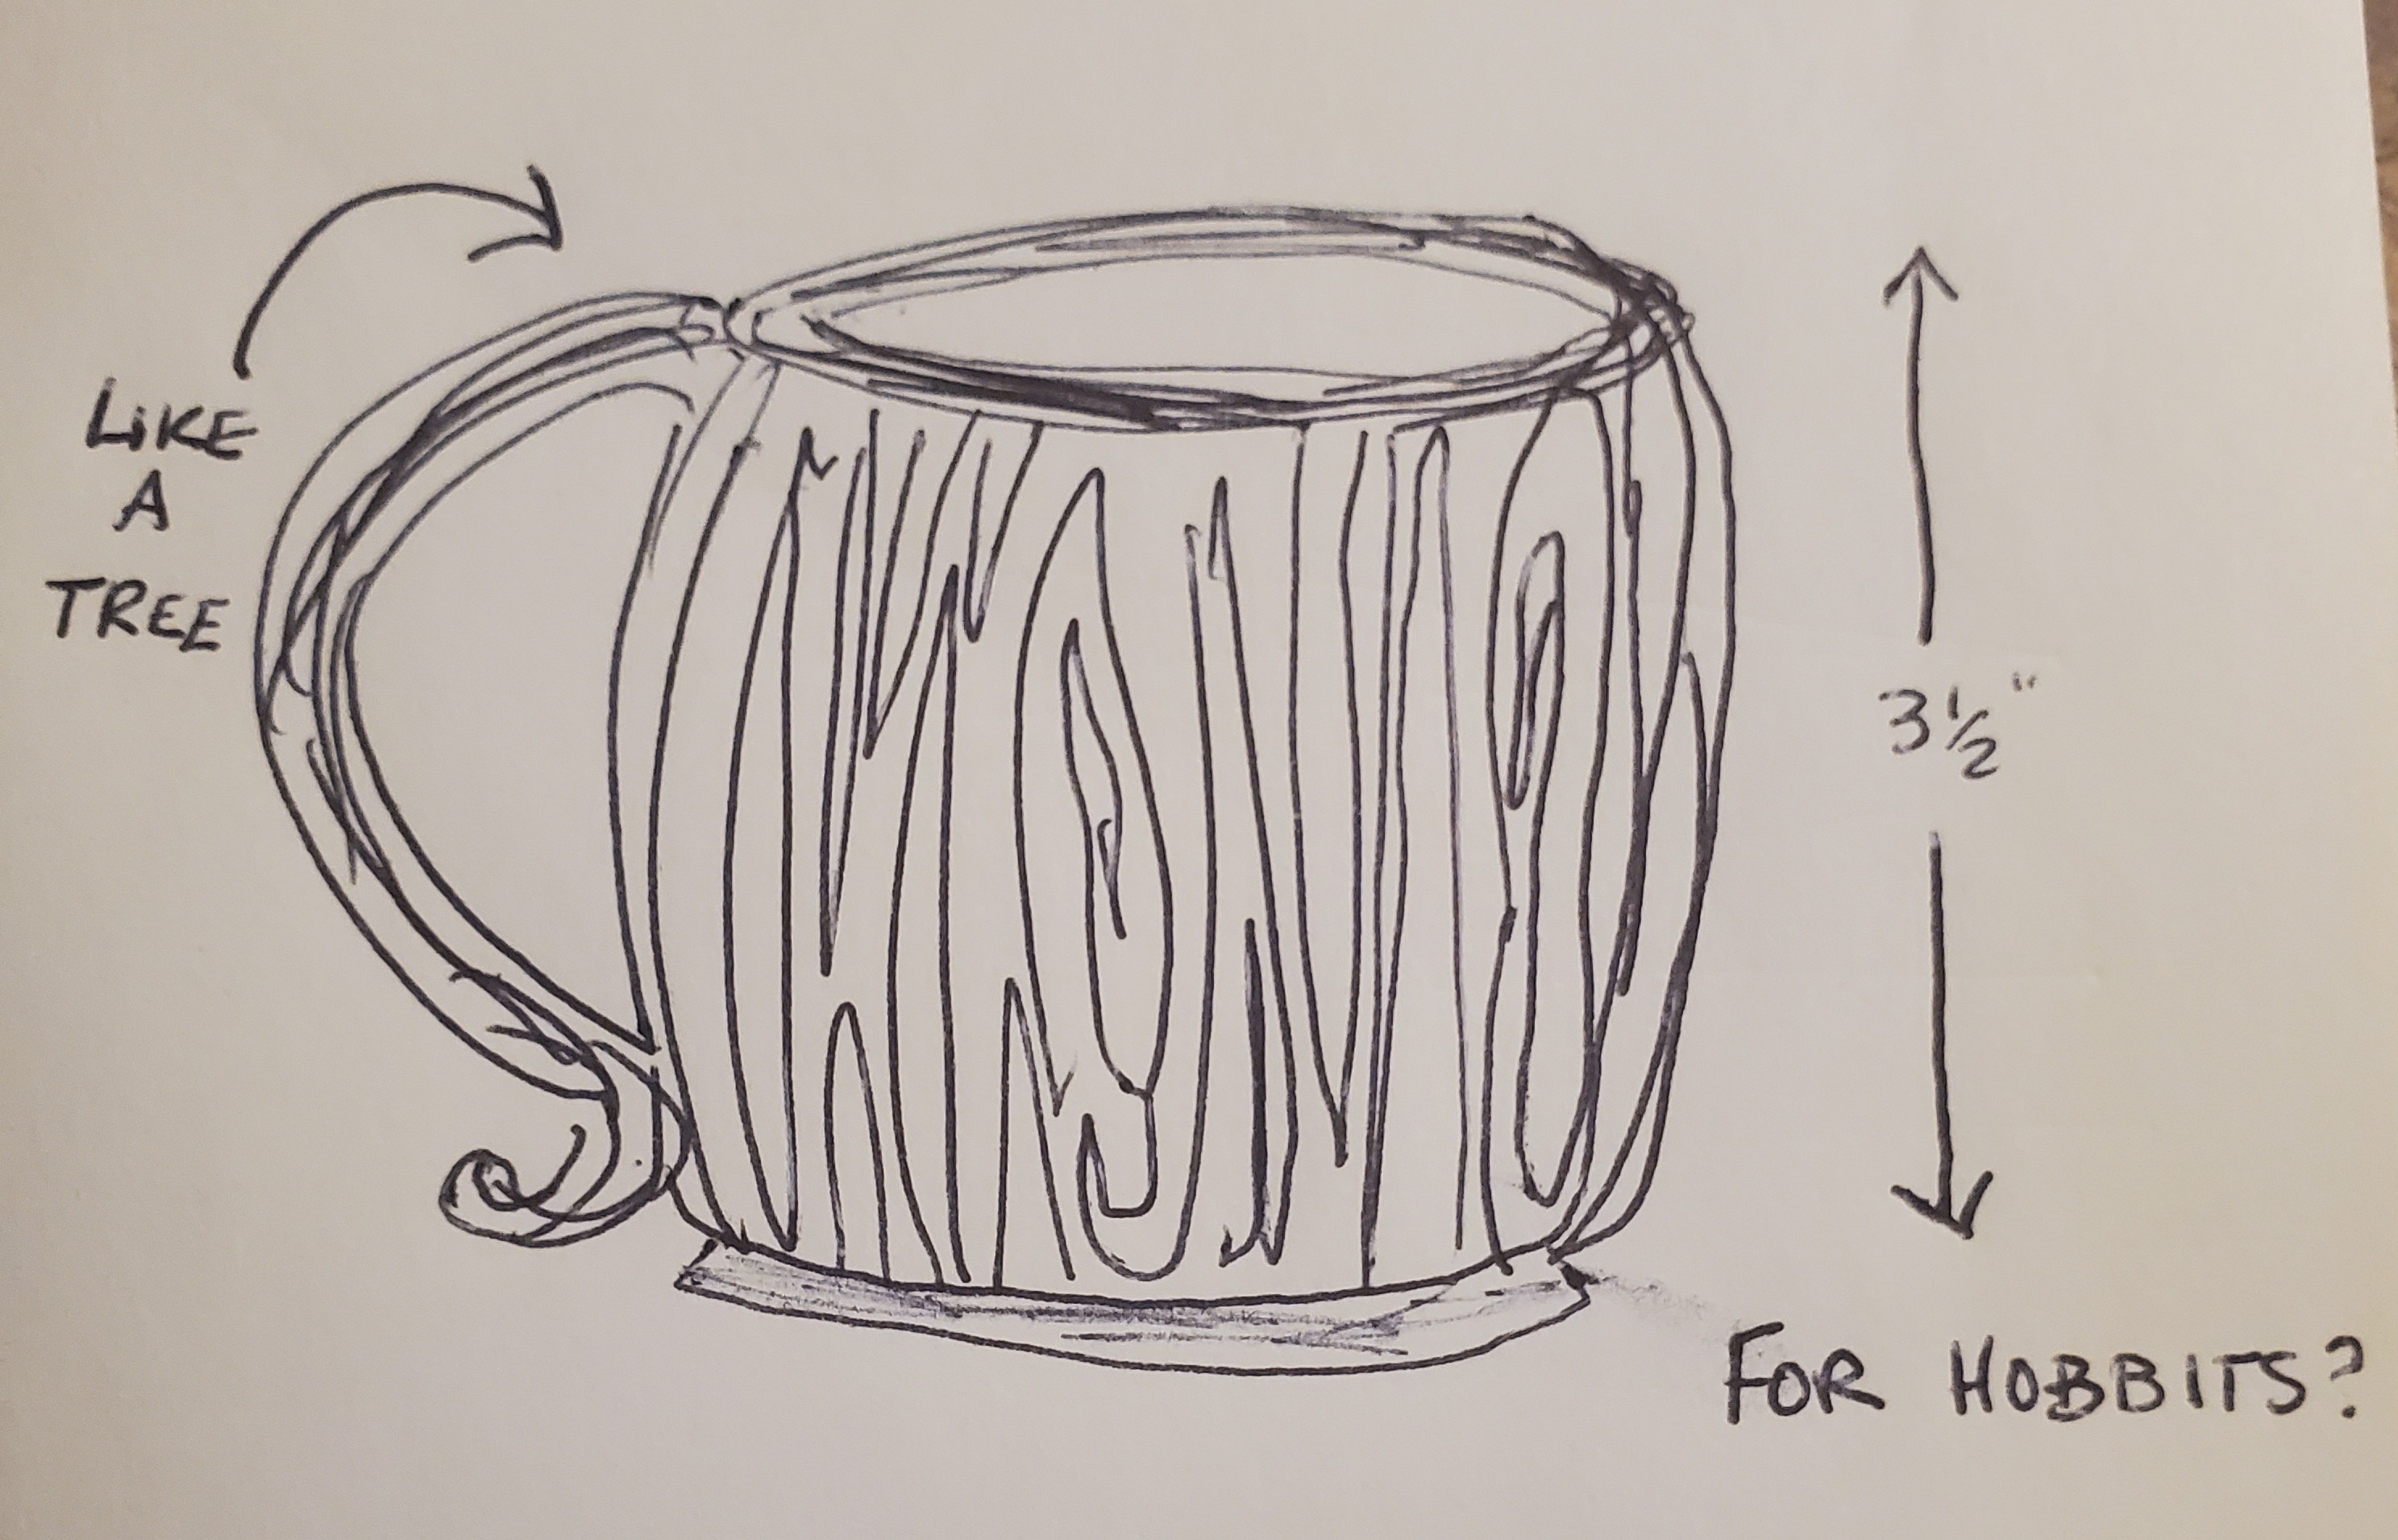 LIKE
A
TREE
3 1/2"
FOR HOBBITS?